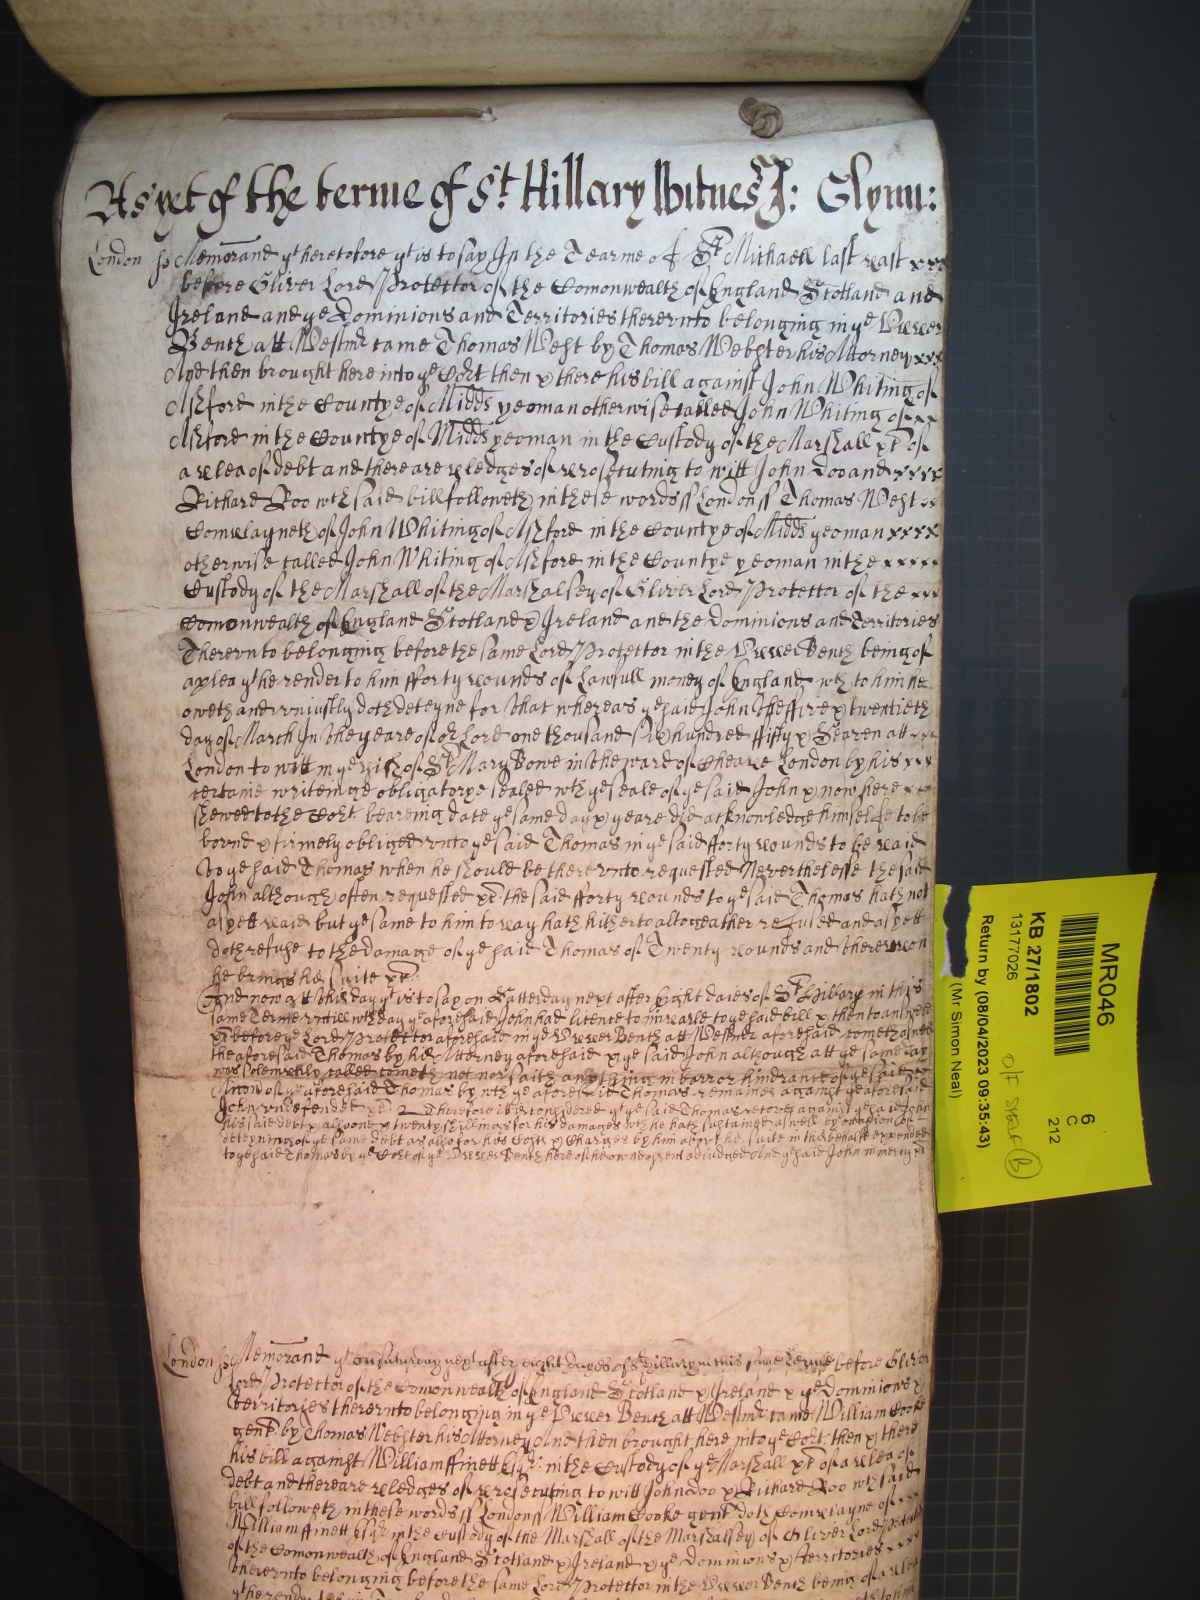 As yet of the terme of St. Hillary Witnes J: Glynn:
London ss Memorand yt heretofore yt is to say In the Tearme of St Michaell last past xxx
before Oliver Lord Protector of the Comonwealth of England Scotland and
Ireland and ye Dominions and Territories therevnto belonging in ye Vpper
Bench att Westmr came Thomas West by Thomas Webster his Attorney xxx
And then brought here into ye Cort then & there his bill against John Whiting of
Ashford in the Countye of Midds yeoman otherwise called John Whiting of xx
Ashford in the Countye of Midds yeoman in the Custody of the Marshall &c of
a plea of debt and there are pledges of prosecuting to witt John Doo and xxxx
Richard Roo wch said bill followeth in these words ss London ss Thomas West xx
Complayneth of John Whiting of Ashford in the Countye of Midds yeoman xxxx
otherwise called John Whiting of Ashford in the Countye yeoman in the xxxx
Custody of the Marshall of the Marshalsey of Oliver Lord Protector of the xxx
Comonwealth of England Scotland & Ireland and the Dominions and Territories
Therevnto belonging before the same Lord Protector in the Vpper Bench being of
a plea yt he render to him fforty pounds of Lawfull money of England wch to him he
oweth and vniustly doth deteyne for that whereas ye said John the ffive & twentieth
day of March In the yeare of or Lord one thousand six hundred ffifty & Seaven att
London to witt in ye pish of St Mary Bowe in the ward of Cheape London by his xxx
certaine writeinge obligatorye sealed wth ye seale of ye said John & now here xx
shewed to the Cort beareing date ye same day & yeare did acknowledge himselfe to be
bound & firmely obliged vnto ye said Thomas in ye said fforty pounds to be paid
to ye said Thomas when he should be therevnto requested Nevertheless the said
John although often requested &c the said fforty pounds to ye said Thomas hath not
as yett paid but ye same to him to pay hath hitherto altogeather refused and as yett
doth refuse to the damage of ye said Thomas of Twenty pounds and therevpon
he brings his suite &c
And now att this day yt is to say on Satterday next after Eight daies of St Hillary in this
same Terme vntill wch day ye aforesaid John had licence to imparle to ye said bill & then to answere
&c before ye Lord Protector aforesaid in ye Vpper Bench att Westmr aforesaid cometh as well
the aforesaid Thomas by his Attorney aforesaid & ye said John although att ye same day
was solemnly called cometh not nor saith any thing in barr or hindrance of ye said
Accon of ye aforesaid Thomas by wch ye aforesaid Thomas remaines against ye aforesaid
John vndefended &c Therefore it is considered yt ye said Thomas recover against ye said John
his said debt & alsoe one & twenty shillings for his damages wch he hath sustained aswell by occasion of
deteyning of ye same debt as also for his Costs & Charges by him about his suite in this behalfe expended
to ye said Thomas by ye Cort of ye Vpper Bench here of his owne assent adiudged And ye said John in mercy &c
London ss Memorand yt on Saturday next after eight dayes of St Hillary in this same Terme before Oliver
Lord Protector of the Comonwealth of England Scotland & Ireland & ye Dominions &
Territories therevnto belonging in ye Vpper Bench att Westmr came William Cooke
gent by Thomas Webster his Attorney And then brought here into ye Cort then & there
his bill against William ffinett Esqr in the Custody of ye Marshall &c of a plea of
debt and there are pledges of prosecuting to witt John Doo & Richard Roo wch said
bill followeth in these words ss London ss William Cooke gent doth Complayne of xxx
William ffinett Esqr in the Custody of the Marshall of the Marshalsey of Oliver Lord Protector
of the Comonwealth of England Scotland & Ireland & ye Dominions & Territories xxxx
therevnto belonging before the same Lord Protector in the Vpper Bench being of a plea
yt he render to him
MR046
6
C
212
KB 27/1802
13177026
O/F SHELF (B)
Return by (08/04/2023 09:35:43)
(Mr Simon Neal)